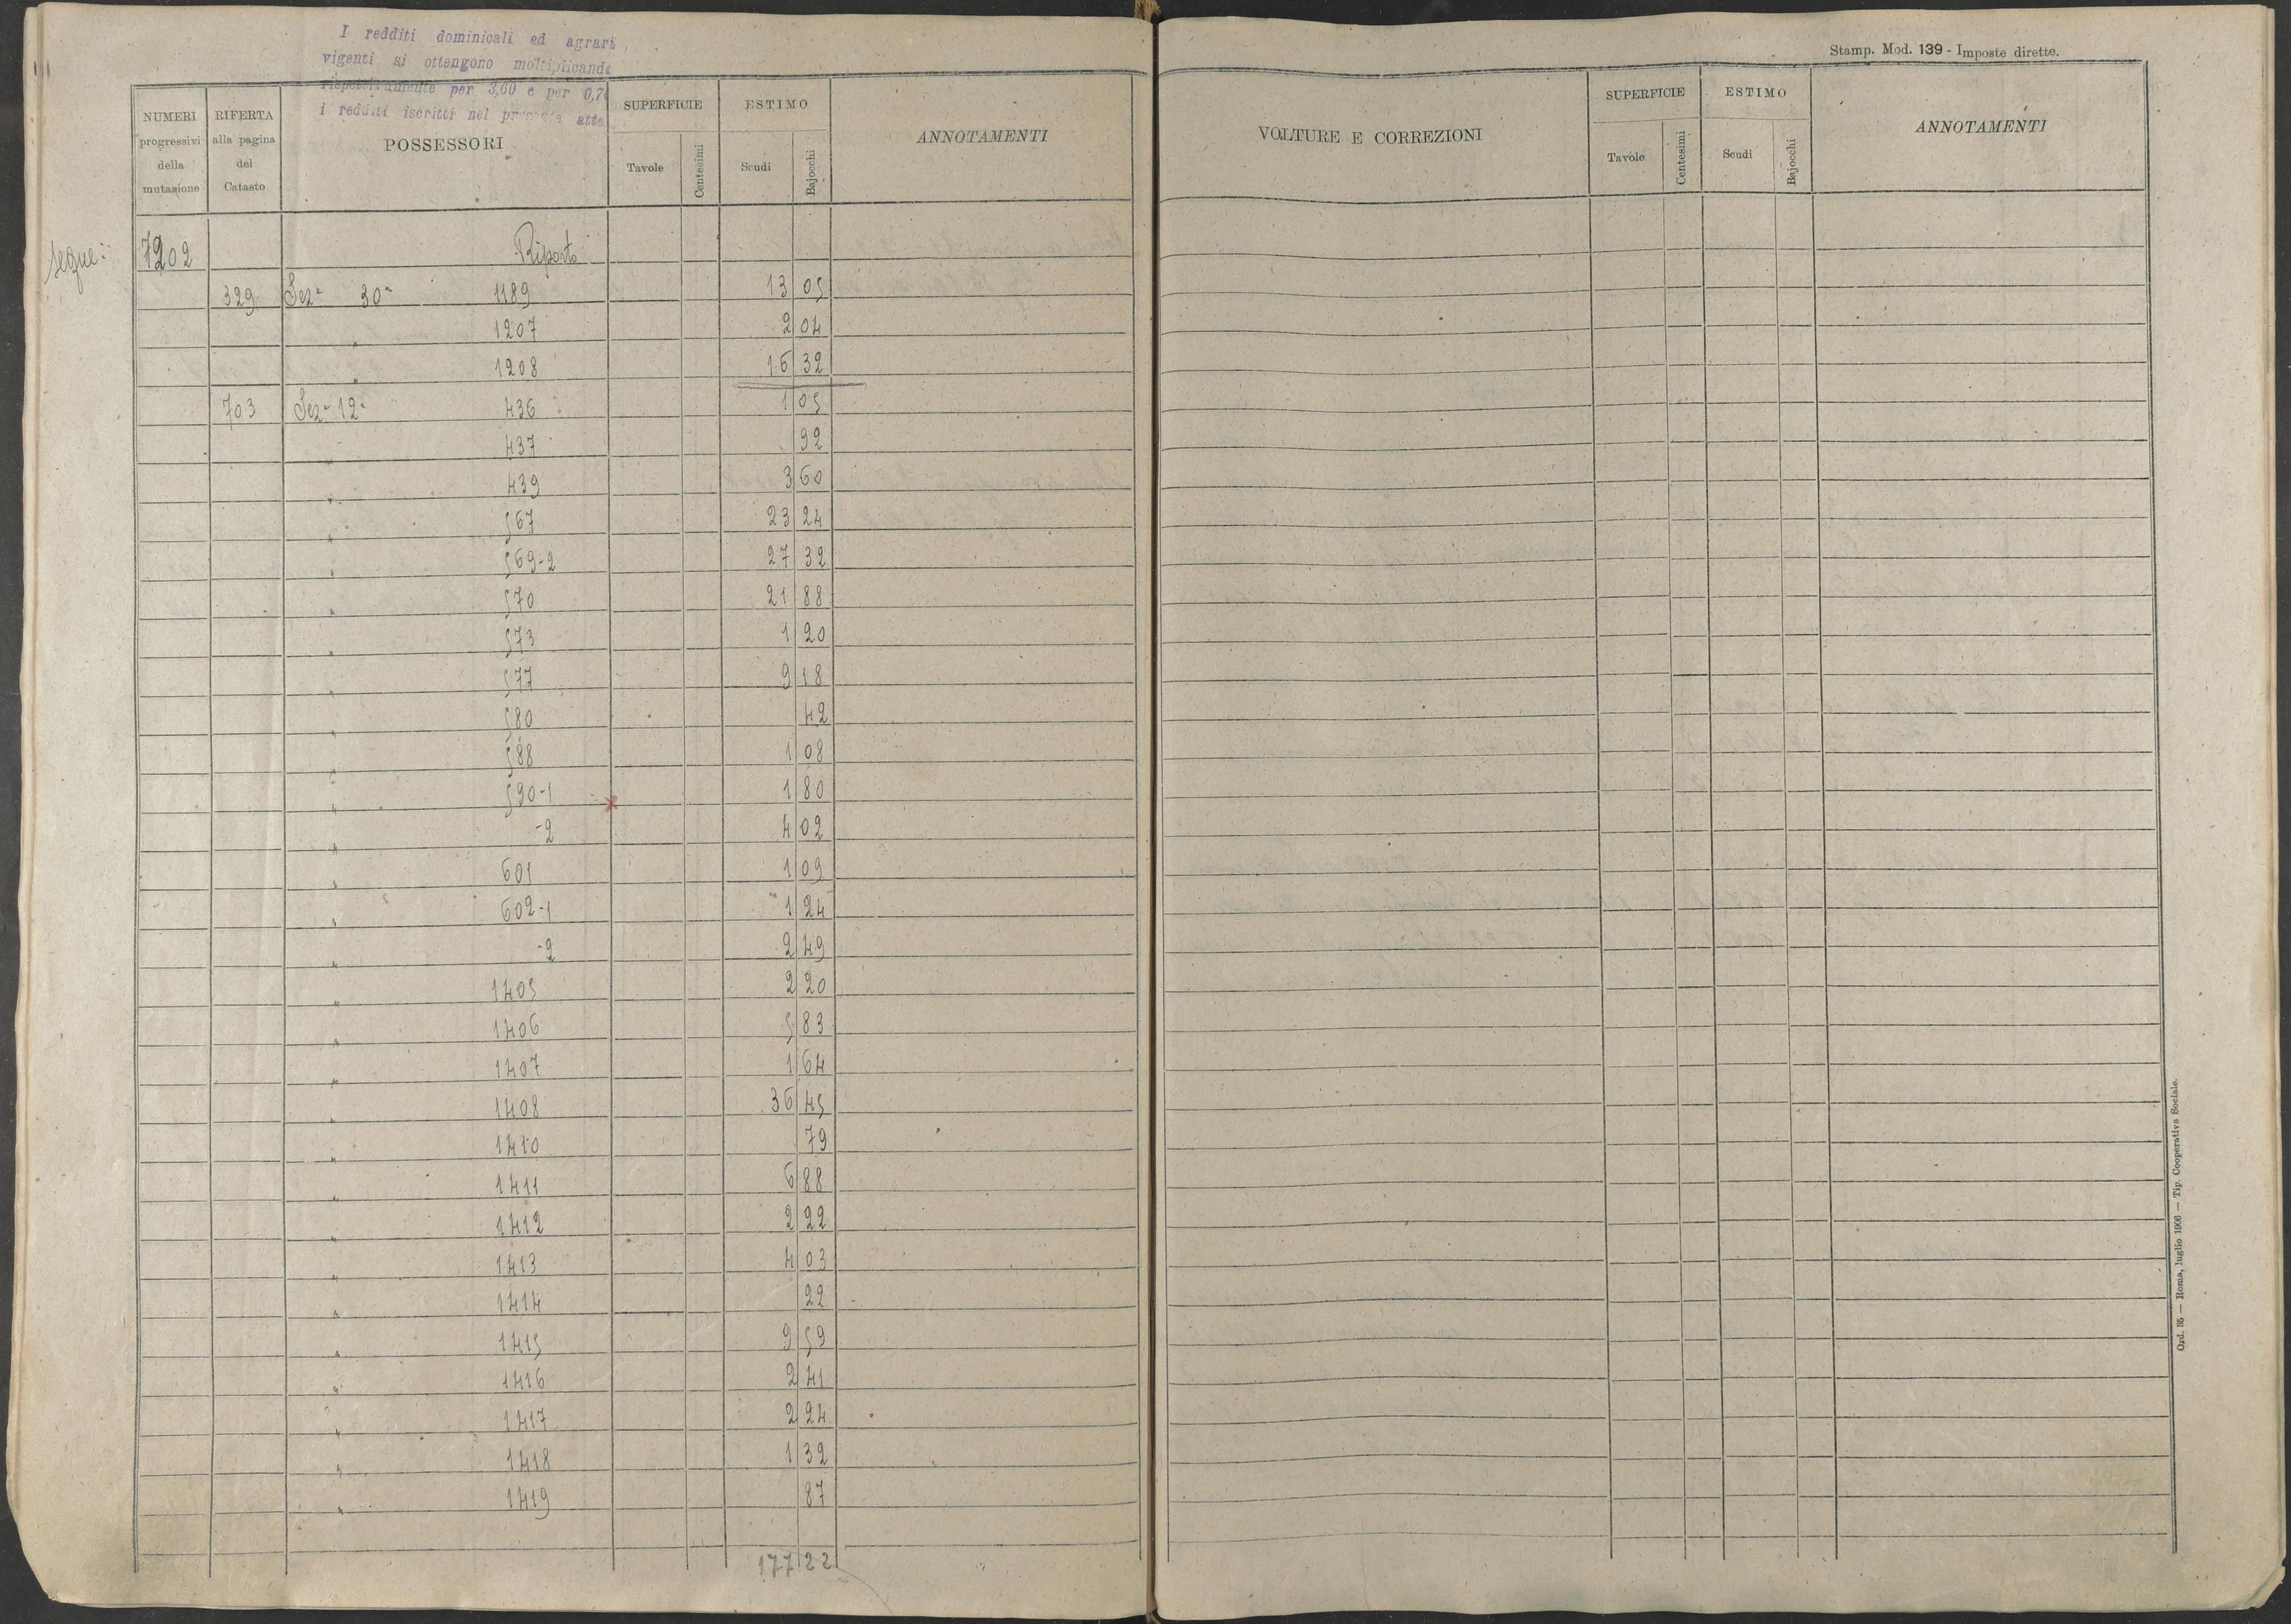 I redditi dominicali ed agrari
vigenti si ottengono moltiplicando
rispettivamente per 3,60 e per 0,70
i redditi iscritti nel presente atto
Stamp. Mod. 139 - Imposte dirette.
NUMERI progressivi della mutazione
RIFERTA alla pagina del Catasto
POSSESSORI
SUPERFICIE Tavole Centesimi
ESTIMO Scudi Bajocchi
ANNOTAMENTI
VOLTURE E CORREZIONI
SUPERFICIE Tavole Centesimi
ESTIMO Scudi Bajocchi
ANNOTAMENTI
segue: 7202 Riporto
329 Sez. 30a 1189 13 05
" 1207 2 04
" 1208 16 32
703 Sez. 12a 436 1 05
" 437 92
" 439 3 60
" 567 23 24
" 569-2 27 32
" 570 21 88
" 573 1 20
" 577 9 18
" 580 42
" 588 1 08
" 590-1 1 80
" -2 4 02
" 601 1 09
" 602-1 1 24
" -2 2 49
" 1405 2 20
" 1406 5 83
" 1407 1 64
" 1408 36 45
" 1410 79
" 1411 6 88
" 1412 2 22
" 1413 4 03
" 1414 22
" 1415 9 59
" 1416 2 41
" 1417 2 24
" 1418 1 32
" 1419 87
177 22
Ord. 35 — Roma, luglio 1906 — Tip. Cooperativa Sociale.